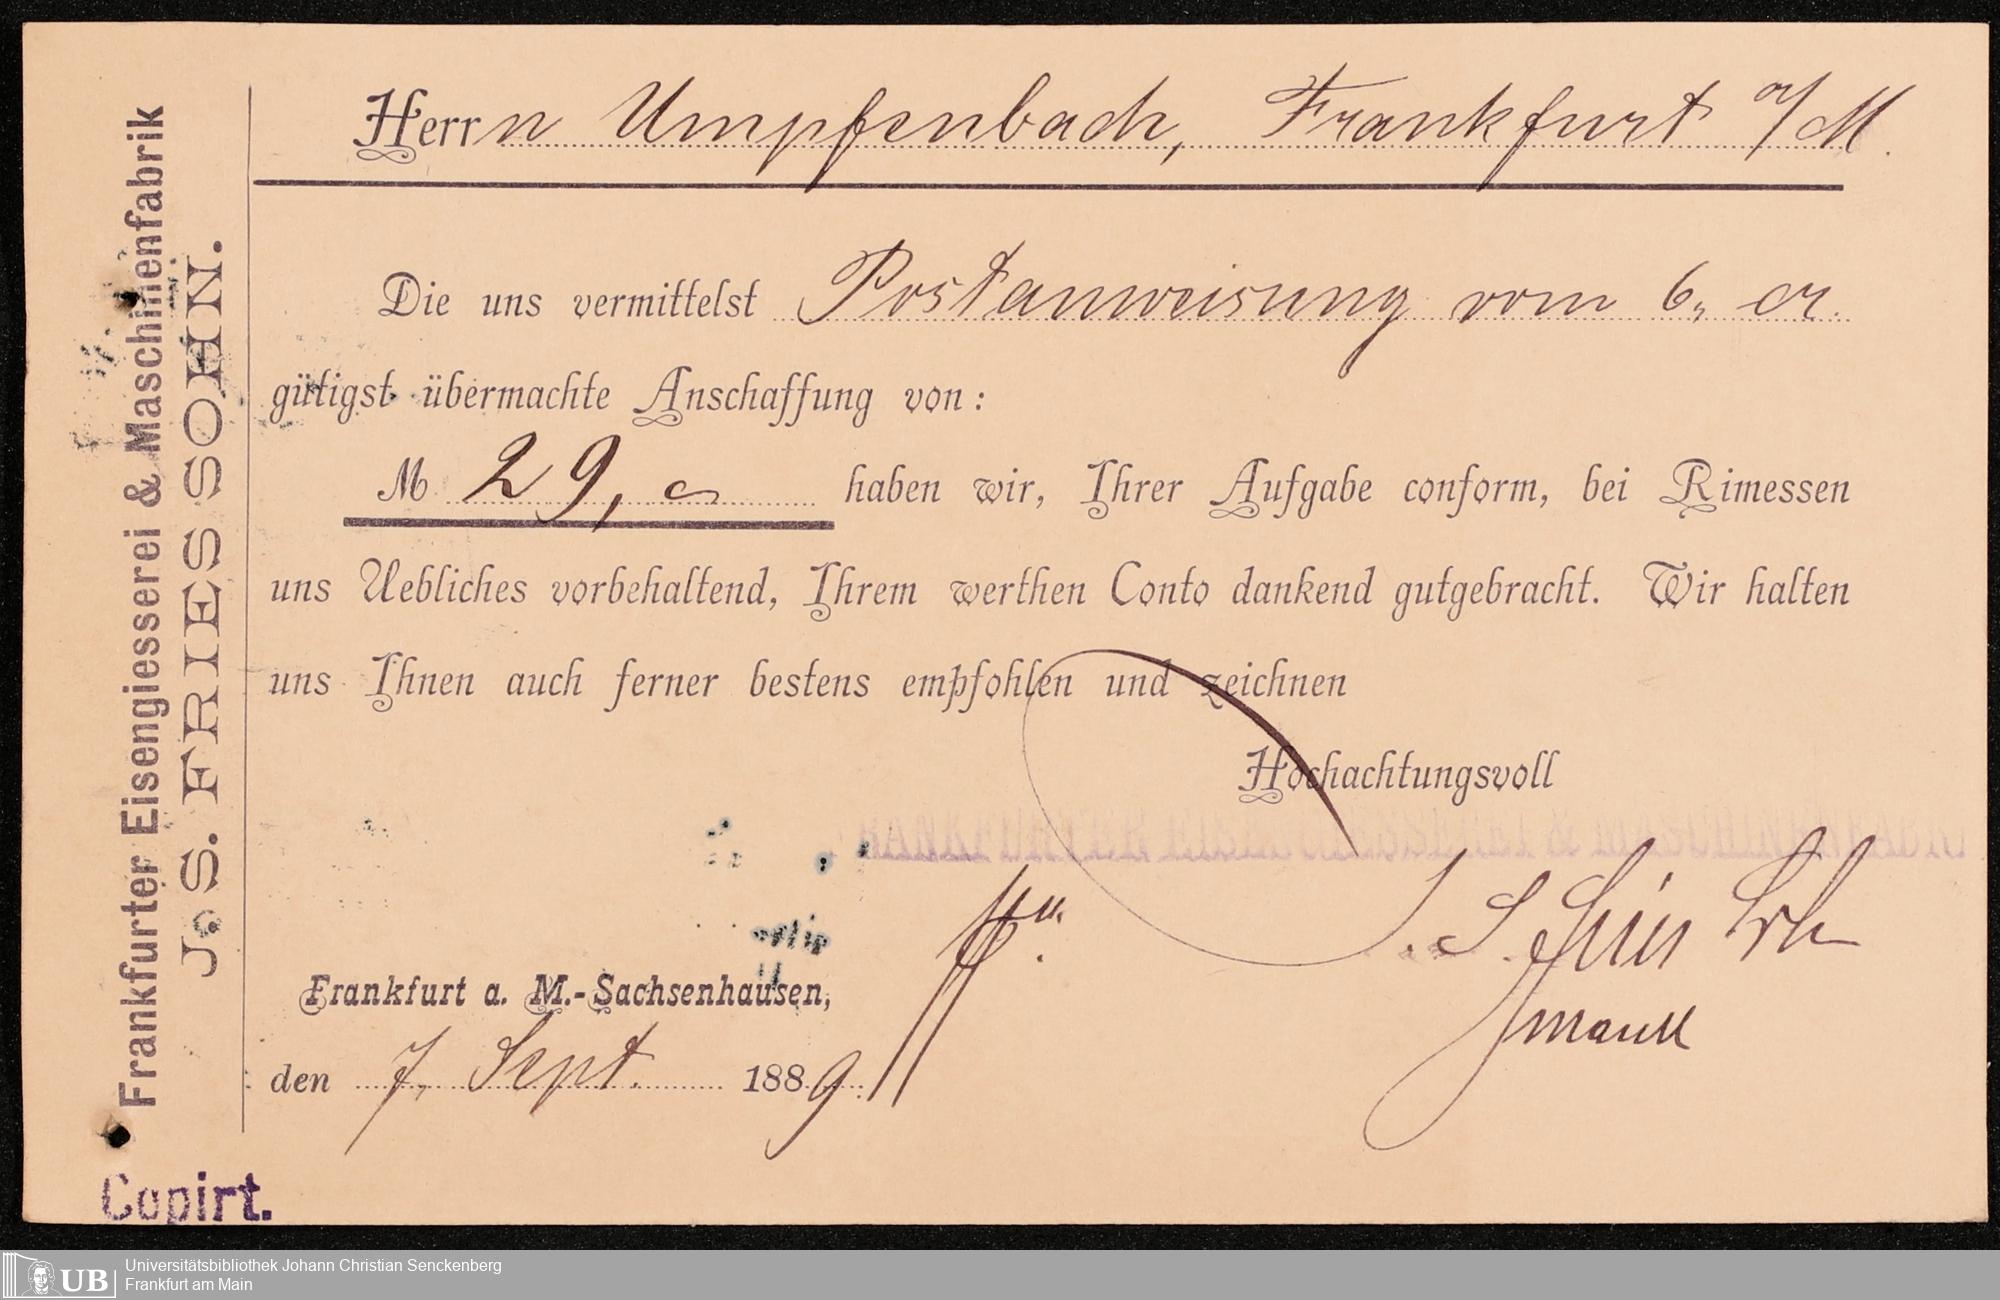 Frankfurter Eisengiesserei & Maschinenfabrik
J. S. FRIES SOHN.
Herrn Umpfenbach, Frankfurt a/M.
Die uns vermittelst Postanweisung vom 6. cr.
gütigst übermachte Anschaffung von:
M 29,
haben wir, Ihrer Aufgabe conform, bei Rimessen
uns Uebliches vorbehaltend, Ihrem werthen Conto dankend gutgebracht. Wir halten
uns Ihnen auch ferner bestens empfohlen und zeichnen
Hochachtungsvoll
J. S. Fries Sohn
Frankfurt a. M.-Sachsenhausen,
den 7. Sept. 1889.
Copirt.
UB
Universitätsbibliothek Johann Christian Senckenberg
Frankfurt am Main